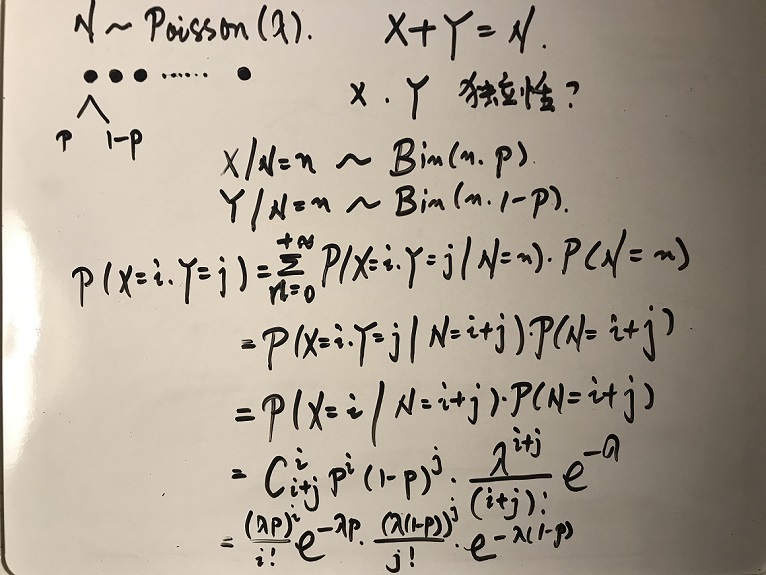 N ~ Poisson(λ). X+Y=N.
●●● ...... ●
X . Y 独立性?
p 1-p
X/N=n ~ Bin(n. p).
Y/N=n ~ Bin(n. 1-p).
P(X=i.Y=j) = \sum_{n=0}^{+∞} P(X=i.Y=j/N=n)·P(N=n)
= P(X=i.Y=j/N=i+j)·P(N=i+j)
= P(X=i/N=i+j)·P(N=i+j)
= C_{i+j}^{i} p^{i} (1-p)^{j} · \frac{λ^{i+j}}{(i+j)!} e^{-λ}
= \frac{(λp)^{i}}{i!} e^{-λp} · \frac{(λ(1-p))^{j}}{j!} · e^{-λ(1-p)}